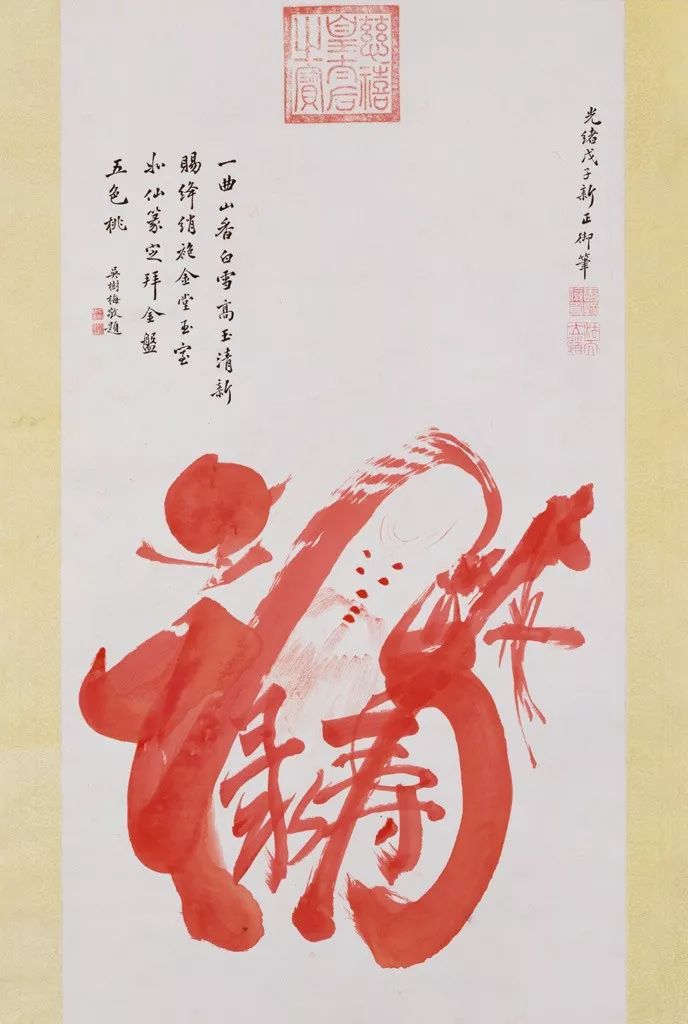 慈禧皇太后之寶
光緒戊子新正御筆
一曲山香白雪高玉清新
賜絳綃袍金堂玉室
如仙篆定拜金盤
五色桃
吳樹梅敬題
寿